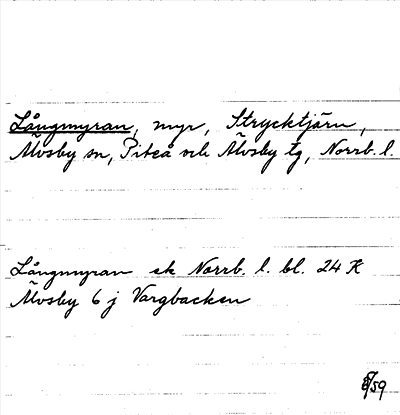 Långmyran, myr, Strycktjärn,
Älvsby sn, Piteå och Älvsby tg, Norrb. l.
Långmyran ek Norrb. l. bl. 24 K
Älvsby 6 j Vargbacken